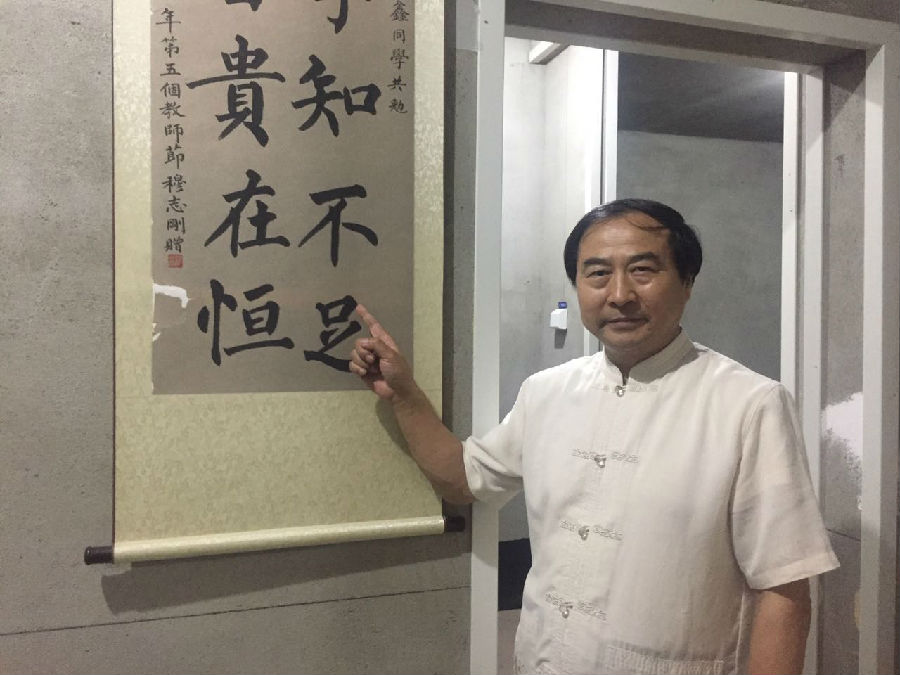 鑫同學共勉
知不足
貴在恒
年第五個教師節穆志剛贈